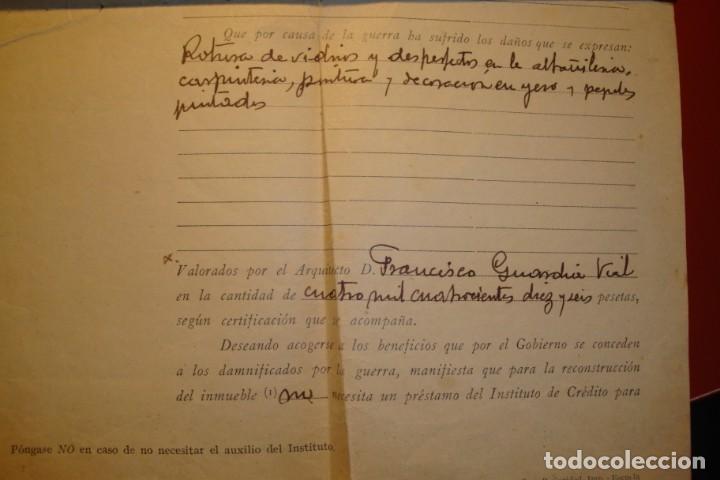 Que por causa de la guerra ha sufrido los daños que se expresan:
Rotura de vidrios y desperfectos en la albañileria,
carpinteria, pintura y decoración en yeso y papeles
pintados
x
Valorados por el Arquitecto D. Francisco Guardia Vial
en la cantidad de cuatro mil cuatrocientos diez y seis pesetas,
según certificación que se acompaña.
Deseando acogerse a los beneficios que por el Gobierno se conceden
a los damnificados por la guerra, manifiesta que para la reconstrucción
del inmueble (1) no necesita un préstamo del Instituto de Crédito para
Póngase NO en caso de no necesitar el auxilio del Instituto.
todocoleccion